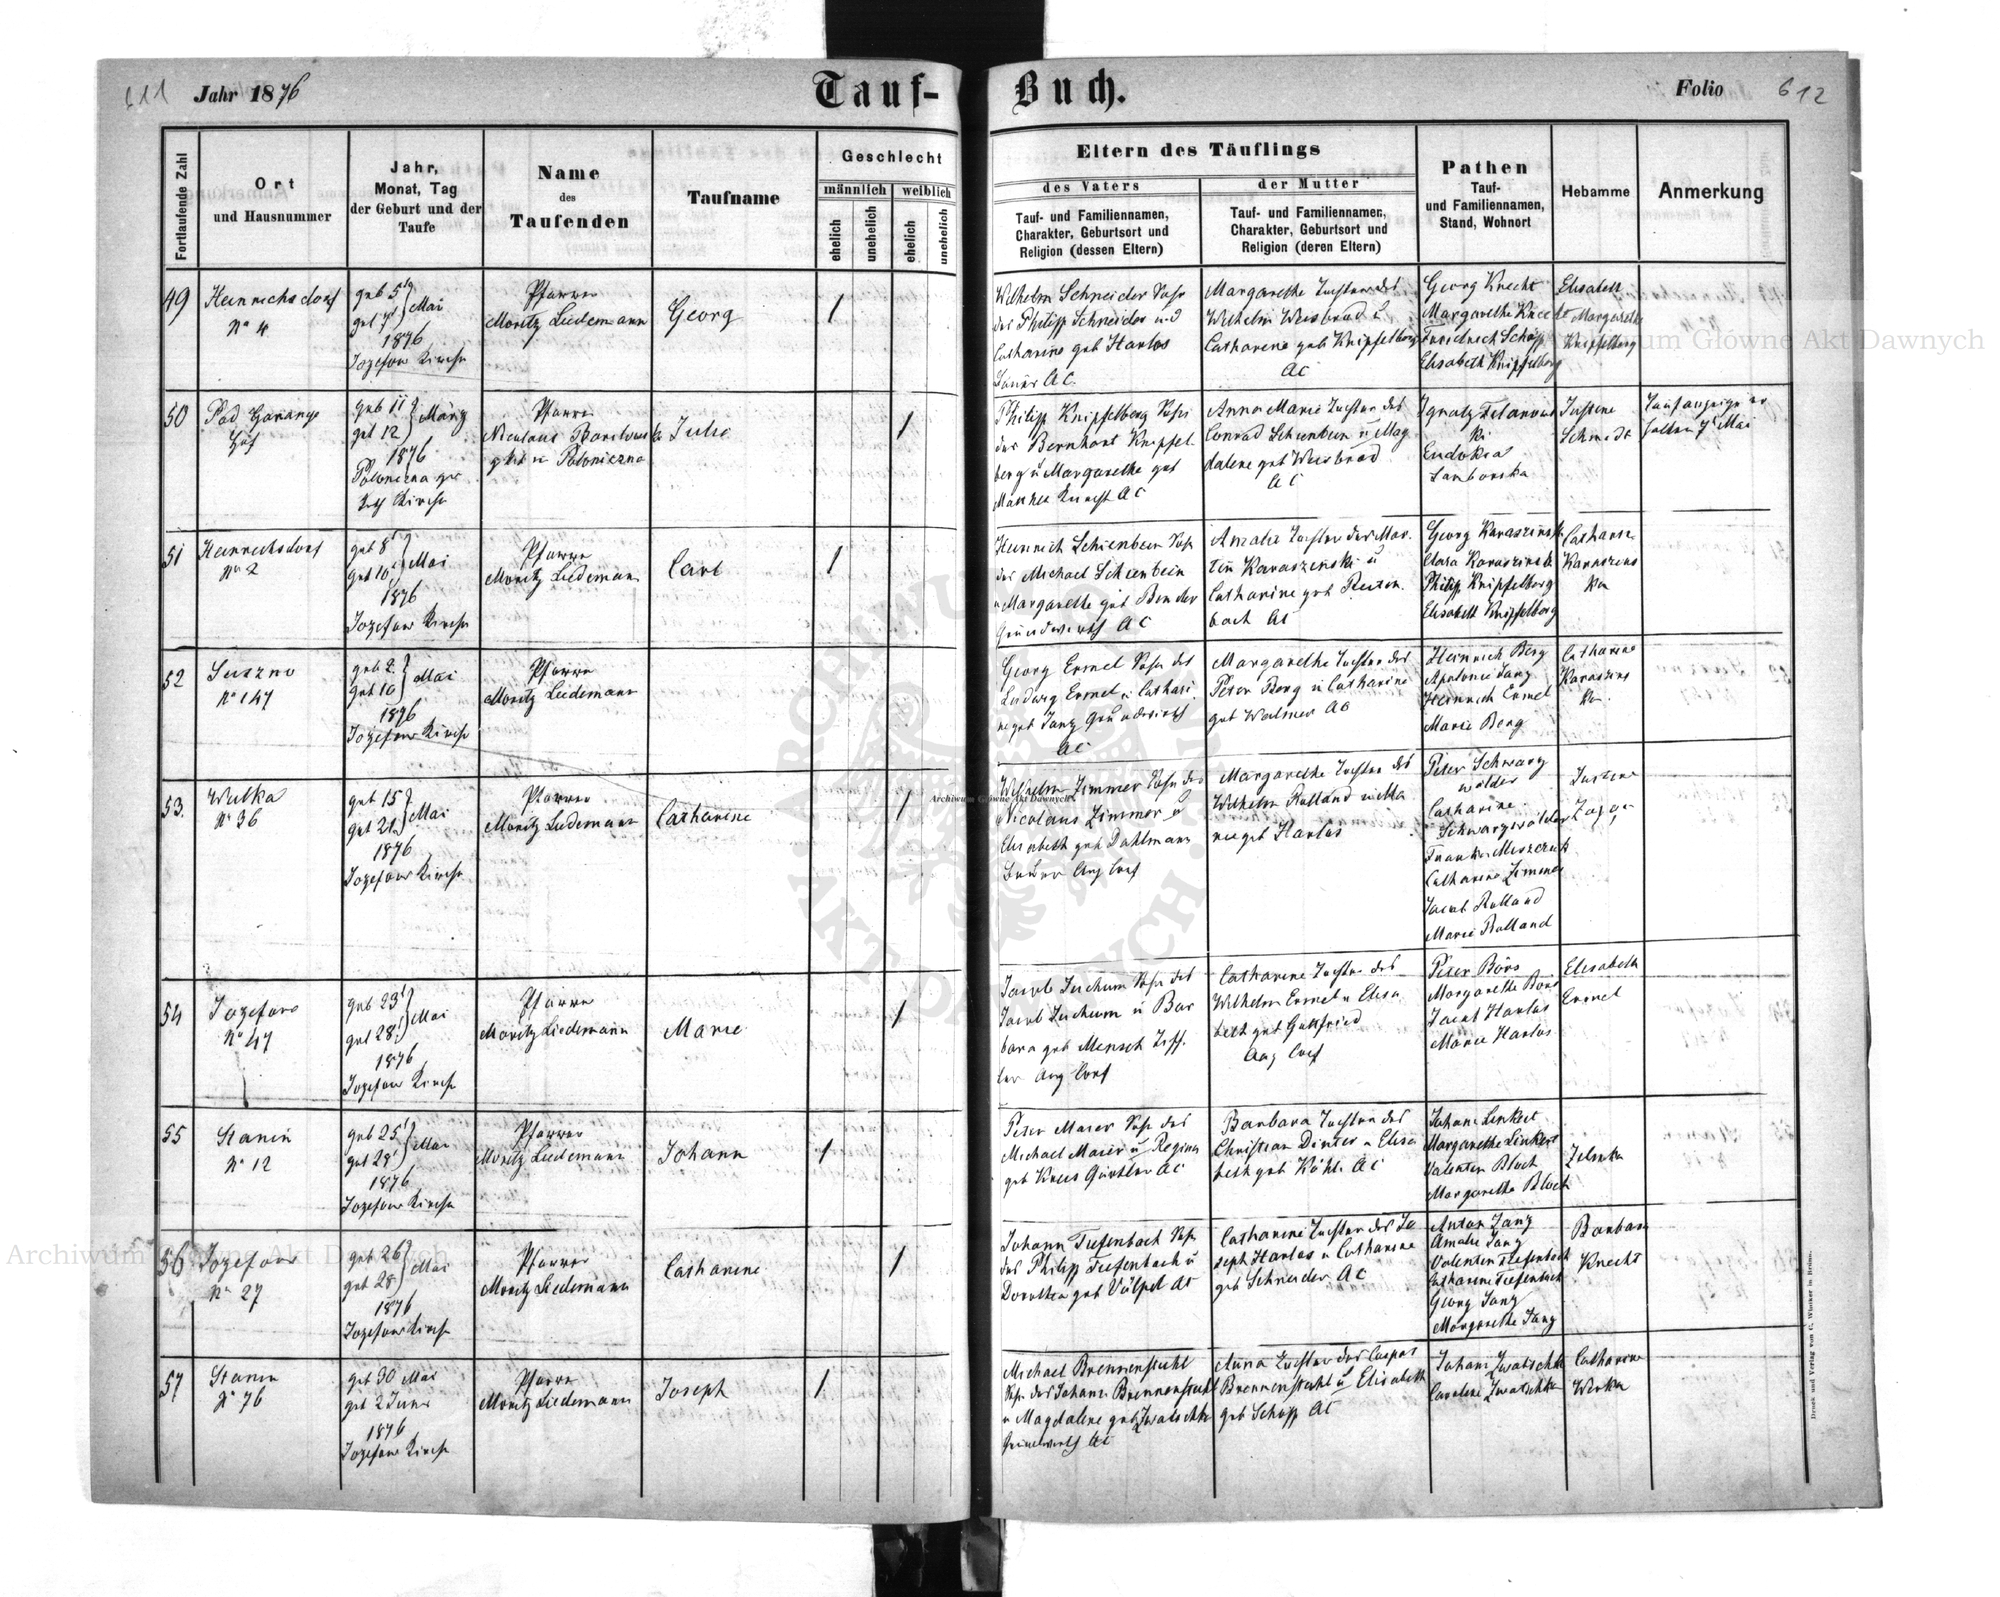 611 Jahr 1876 Tauf-
Buch. Folio 612
Fortlaufende Zahl
Ort
und Hausnummer
Jahr,
Monat, Tag
der Geburt und der
Taufe
Name
des
Taufenden
Taufname
Geschlecht
männlich weiblich
ehelich unehelich ehelich unehelich
Eltern des Täuflings
des Vaters
der Mutter
Tauf- und Familiennamen,
Charakter, Geburtsort und
Religion (dessen Eltern)
Tauf- und Familiennamen,
Charakter, Geburtsort und
Religion (deren Eltern)
Pathen
Tauf-
und Familiennamen,
Stand, Wohnort
Hebamme
Anmerkung
49
Heinrichsdorf
No 4
geb 5
get 7 Mai
1876
Jozefow Kirche
Pfarrer
Moritz Liedemann
Georg
1
Wilhelm Schneider Sohn
des Philipp Schneider und
Catharine geb Harlos
AC
Margarethe Tochter des
Wilhelm Weisbrod u
Catharine geb Knipfelberg
AC
Georg Knecht
Margarethe Knecht
Friedrich Schöpp
Elisabeth Knipfelberg
Elisabeth
Margarethe
Knipfelberg
50
geb 11
get 12 März
1876
Kirche
Pfarrer
Nicolaus
Julie
1
Philipp Knipfelberg Sohn
des Bernhart Knipfel
berg u Margarethe geb
AC
Anna Marie Tochter des
Conrad Schienbein u Mag
dalene geb Weisbrod
AC
Ignatz
Eudokia
Justine
Schmidt
Taufanzeige er
halten 7 Mai
51
Heinrichsdorf
No 2
geb 8
get 10 Mai
1876
Jozefow Kirche
Pfarrer
Moritz Liedemann
Carl
1
Heinrich Schienbein Sohn
des Michael Schienbein
u Margarethe geb Bender
Grundwirth AC
Amalie Tochter des Mar
tin Karaszenski u
Catharine geb
bach AC
Georg Karaszinski
Clara Karaszinski
Philipp Knipfelberg
Elisabeth Knipfelberg
Catharine
Karaszins
ka
52
Suszno
No 147
geb 2
get 10 Mai
1876
Jozefow Kirche
Pfarrer
Moritz Liedemann
Georg Ermel Sohn des
Ludwig Ermel u Cathari
ne geb Janz Grundwirth
AC
Margarethe Tochter des
Peter Berg u Catharine
geb Walmer AC
Heinrich Berg
Apolonie Janz
Heinrich Ermel
Marie Berg
Catharine
Karaszins
ka
53.
Wulka
No 36
geb 15
get 21 Mai
1876
Jozefow Kirche
Pfarrer
Moritz Liedemann
Catharine
1
Wilhelm Zimmer Sohn des
Nicolaus Zimmer u
Elisabeth geb Dahlmann
Aug Conf
Margarethe Tochter des
Wilhelm Rolland u Ma
rie geb Harlos
Peter Schwarz
wälder
Catharine
Schwarzwälder
Catharine Zimmer
Jacob Rolland
Marie Rolland
Justine
54
Jozefow
No 47
geb 23
get 28 Mai
1876
Jozefow Kirche
Pfarrer
Moritz Liedemann
Marie
1
Jacob Juchum Sohn des
Jacob Juchum u Bar
bara geb Mensch Tisch
ler Aug Conf
Catharine Tochter des
Wilhelm Ermel u Elisa
beth geb Gottfried
Aug Conf
Peter Börs
Margarethe Börs
Jacob Harlos
Marie Harlos
Elisabeth
Ermel
55
Stanin
No 12
geb 25
get 28 Mai
1876
Jozefow Kirche
Pfarrer
Moritz Liedemann
Johann
1
Peter Maier Sohn des
Michael Maier u Regina
geb Kreis AC
Barbara Tochter des
Christian Dinter u Elisa
beth geb Köhl AC
Johann Linkert
Margarethe Linkert
Valentin Bloch
Margarethe Bloch
Zelinka
56
Jozefow
No 27
geb 26
get 28 Mai
1876
Jozefow Kirche
Pfarrer
Moritz Liedemann
Catharine
1
Johann Tiefenbach Sohn
des Philipp Tiefenbach u
Dorothea geb Völpel AC
Catharine Tochter des Jo
seph Harlos u Catharine
geb Schneider AC
Anton Janz
Amalie Janz
Valentin Tiefenbach
Catharine Tiefenbach
Georg Janz
Margarethe Janz
Barbara
Knecht
57
Stanin
No 76
geb 30 Mai
get 2 Juni
1876
Jozefow Kirche
Pfarrer
Moritz Liedemann
Joseph
1
Michael Brennenstuhl
Sohn des Johann Brennenstuhl
u Magdalene geb Zwatschka
Grundwirth AC
Anna Tochter des Caspar
Brennenstuhl u Elisabeth
geb Schöpp AC
Johann Zwatschka
Caroline Zwatschka
Catharine
Werka
Druck und Verlag von C. Winiker in Brünn.
Archiwum Główne Akt Dawnych
Archiwum Główne Akt Dawnych
Archiwum Główne Akt Dawnych